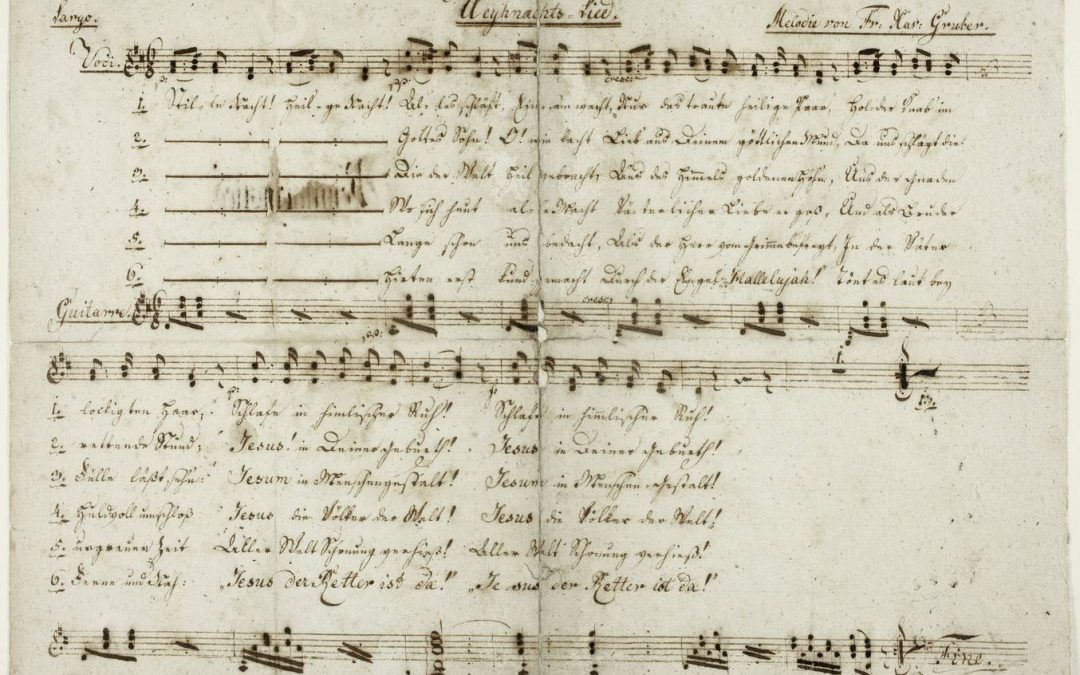 Largo. Weyhnachts-Lied. Melodie von Fr. Xav: Gruber.
Voci.
cresc:
1. Stil-le Nacht! Heil-ge Nacht! Al-les schläft, Einsam wacht, Nur das traute heilige Paar, Holder Knab' im
2. Gottes Sohn! O! wie lacht Lieb aus Deinem göttlichen Mund, Da uns schlägt die
3. Die der Welt Heil gebracht, Aus des Himmels goldenen Höhn, Aus der Gnaden
4. Wo sich heut alle Macht Väterlicher Liebe ergoß, Und als Bruder
5. Lange schon uns bedacht, Als der Herr vom Grimme befreyt, In der Väter
6. Hirten erst kund-gemacht Durch der Engel Hallelujah! Tönt es laut bey
cresc:
Guitarre.
1. lockigten Haar, Schlafe in himlischer Ruh! Schlafe in himmlischer Ruh!
2. rettende Stund; Jesus! in Deiner Geburth! Jesus in Deiner Geburth!
3. Fülle läßt sehn: Jesum in Menschengestalt! Jesum in Menschen-Gestalt!
4. Huldvoll umschloß Jesus die Völker der Welt! Jesus die Völker der Welt!
5. urgrauer Zeit Aller Welt Schonung verhieß! Aller Welt Schonung verhieß!
6. Ferne und Nah: „Jesus der Retter ist da!" „Je-sus der Retter ist da!"
Fine.